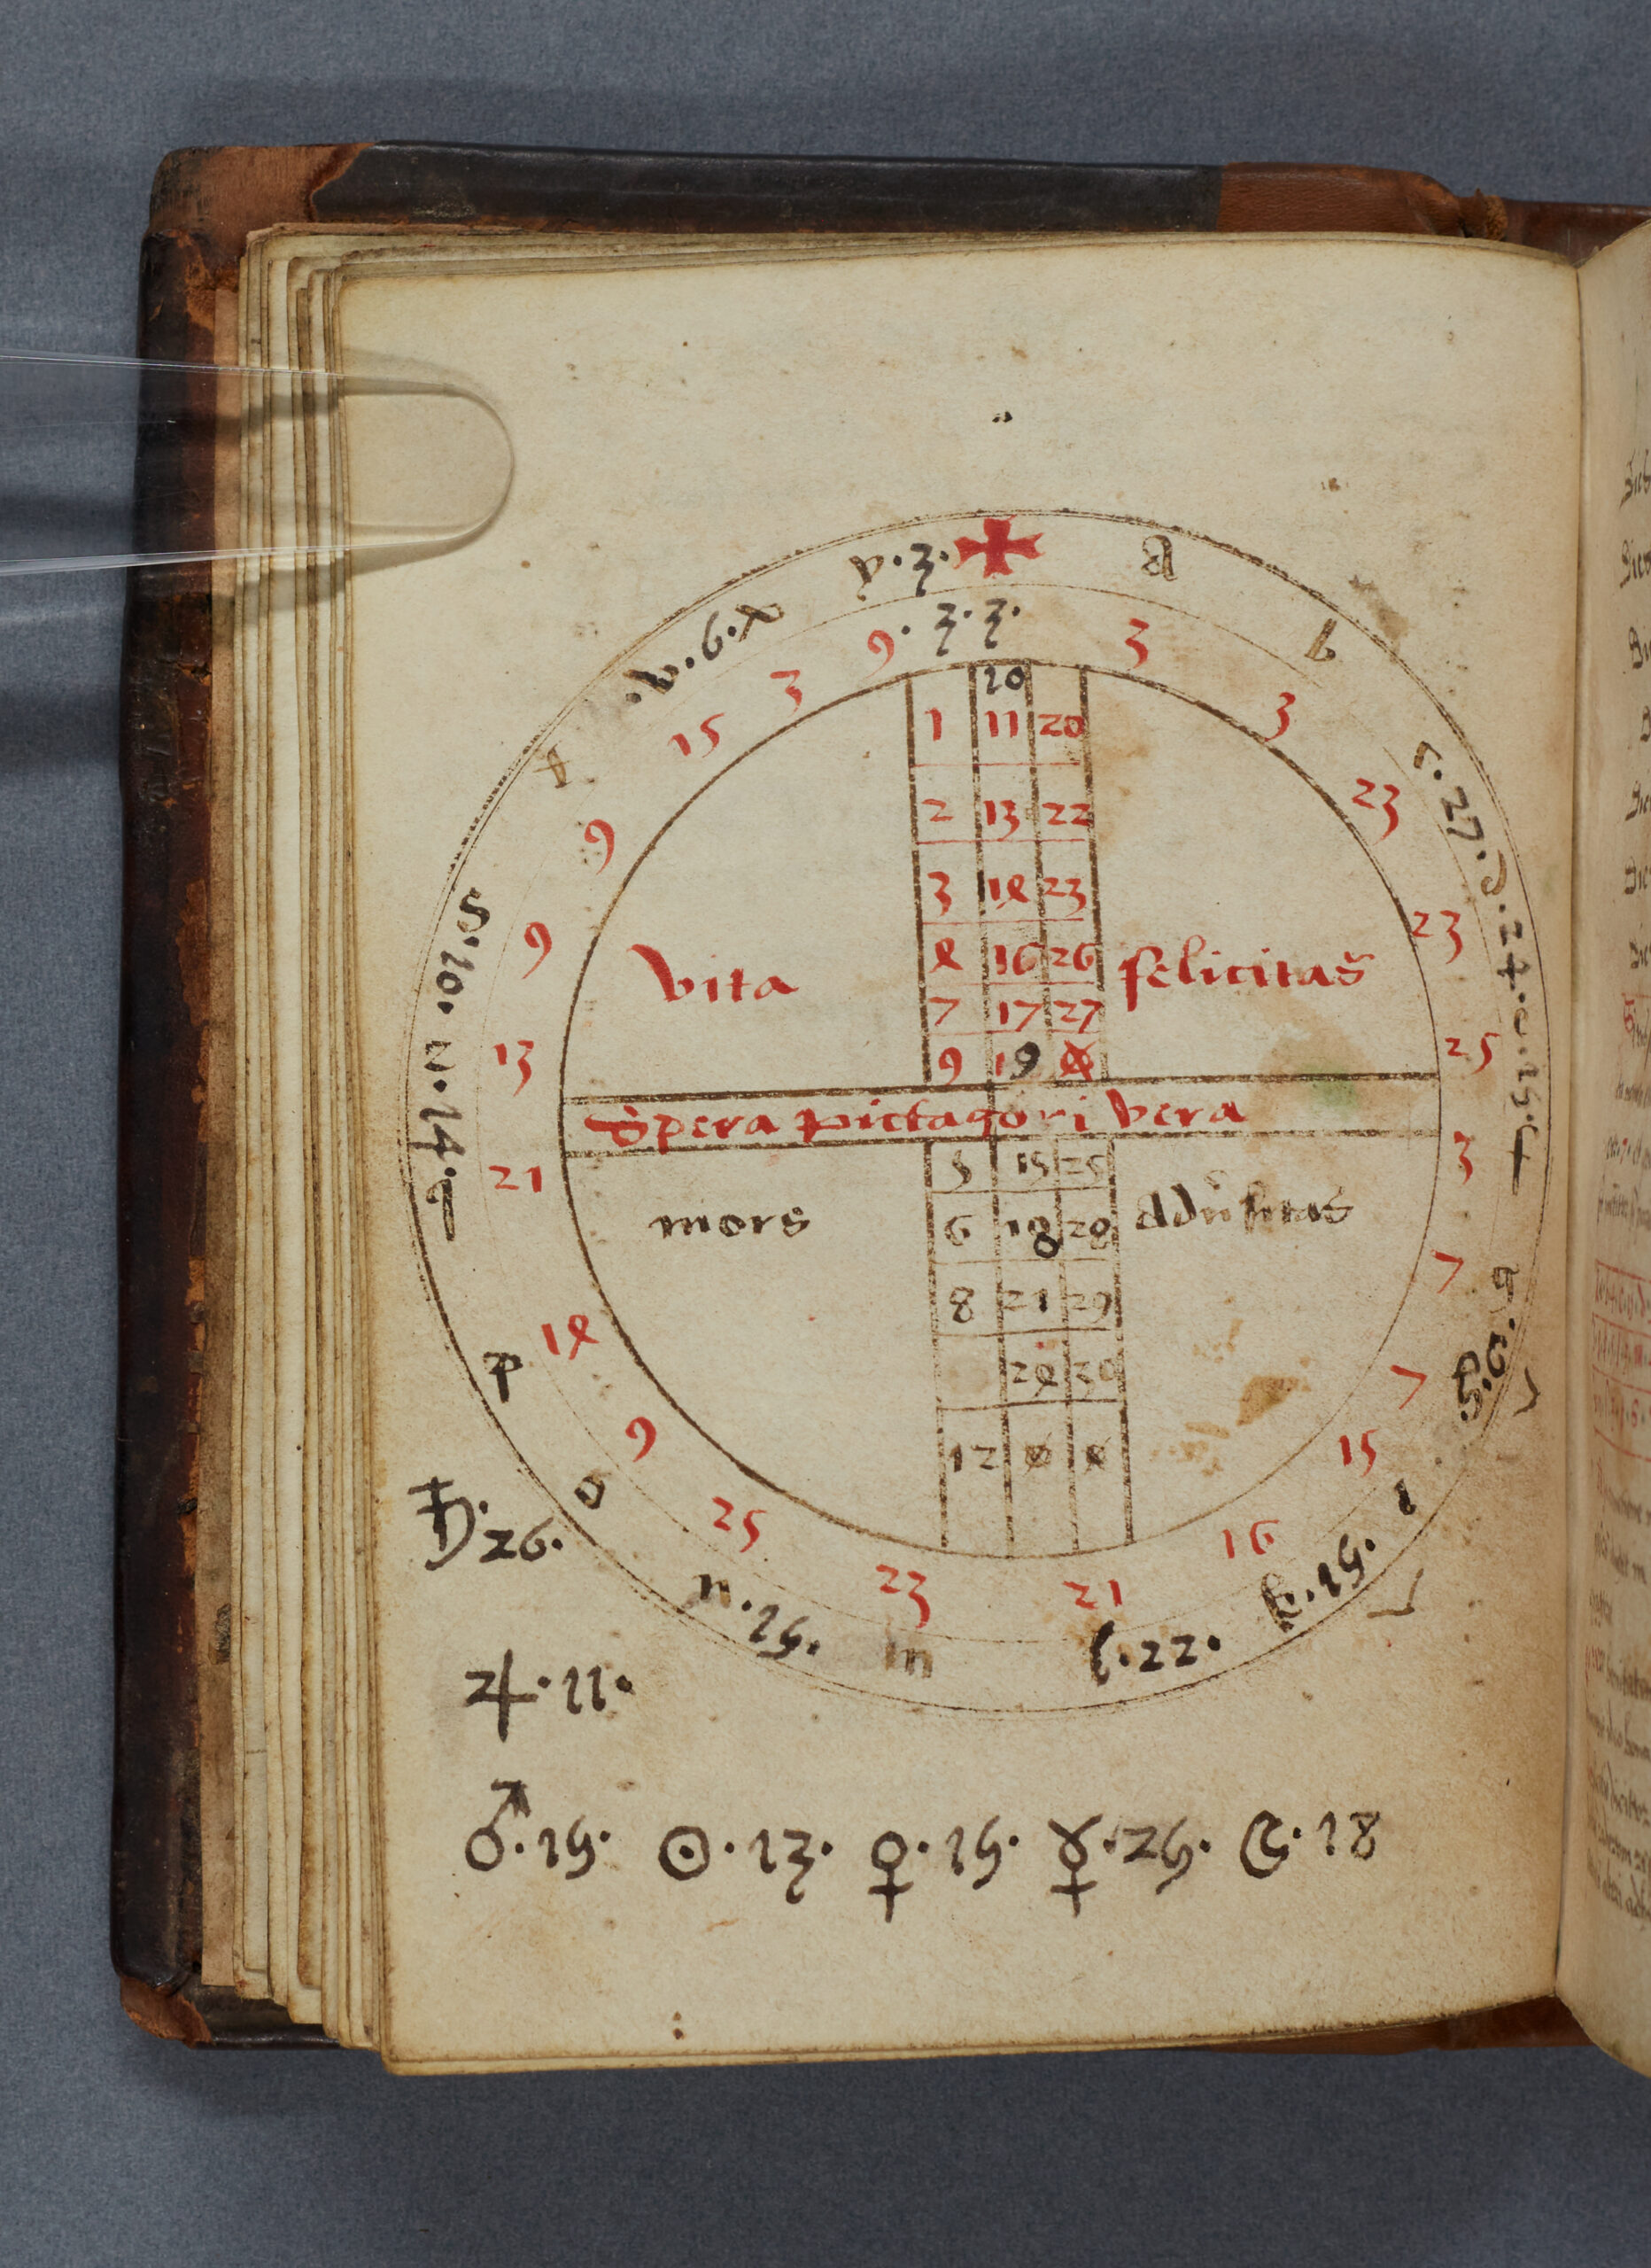 ✠ a b
c.27.d.24.e.15.f
g.6.h
i
k.15.
l.22.
m
n.15.
o
p
q.14.r
.10.s
t
.v.6.x
y.3.
9.3.3.
3
3
23
23
25
3
7
7
15
16
21
23
25
9
14
21
13
9
9
15
3
10
1 11 20
2 13 22
3 14 23
4 16 26
7 17 27
9 19
vita felicitas
Spera pictagori vera
5 15 25
6 18 28
mors adũsitas
8 21 29
24 30
12
♄.26.
♃.11.
♂.15. ☉.13. ♀.15. ☿.25. ☽.18